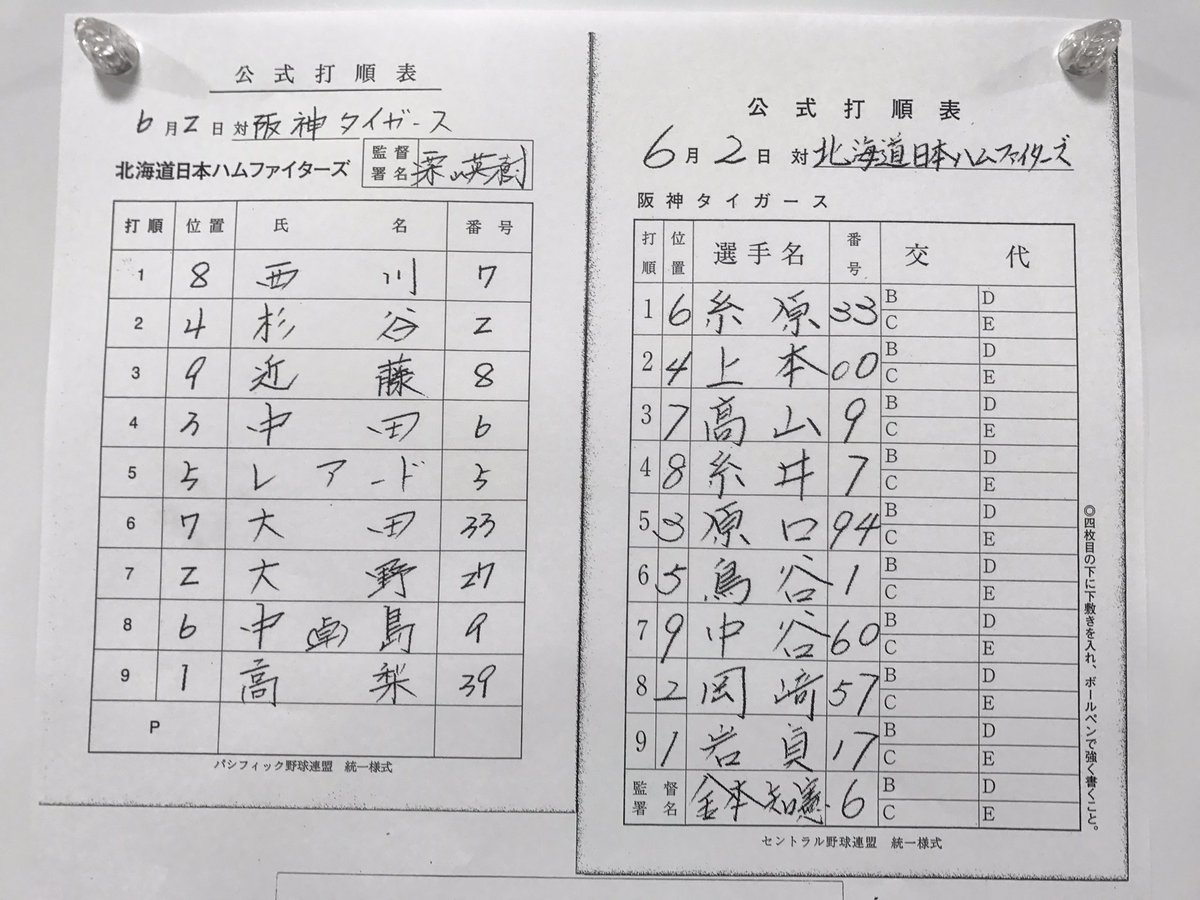 公式打順表
6月2日対阪神タイガース
北海道日本ハムファイターズ 監督署名 栗山英樹
打順 位置 氏名 番号
1 8 西川 7
2 4 杉谷 2
3 9 近藤 8
4 3 中田 6
5 5 レアード 5
6 7 大田 33
7 2 大野 27
8 6 中(卓)島 9
9 1 高梨 39
P
パシフィック野球連盟 統一様式
公式打順表
6月2日 対北海道日本ハムファイターズ
阪神タイガース
打順 位置 選手名 番号 交代
1 6 糸原 33 B D
C E
2 4 上本 00 B D
C E
3 7 髙山 9 B D
C E
4 8 糸井 7 B D
C E
5 3 原口 94 B D
C E
6 5 鳥谷 1 B D
C E
7 9 中谷 60 B D
C E
8 2 岡﨑 57 B D
C E
9 1 岩貞 17 B D
C E
監督署名 金本知憲 6 B D
C E
セントラル野球連盟 統一様式
◎四枚目の下に下敷きを入れ、ボールペンで強く書くこと。